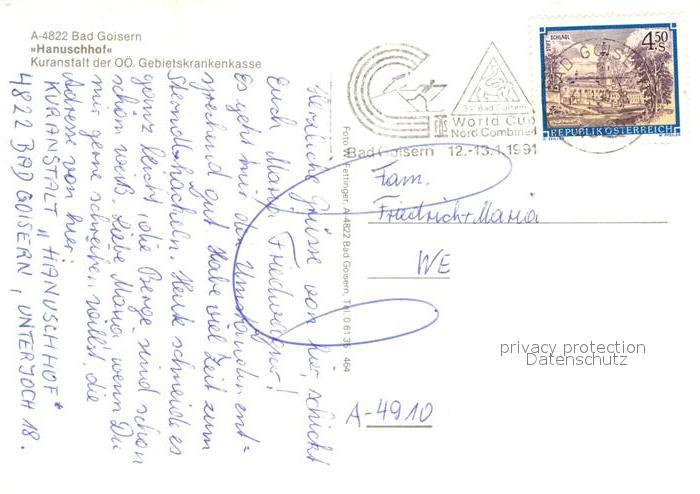 A-4822 Bad Goisern
»Hanuschhof«
Kuranstalt der OÖ. Gebietskrankenkasse
Herzliche Grüsse von hier, schickt
Euch Maria
Es geht mir den Umständen ent=
sprechend gut. Habe viel Zeit zum
Heute schneid es
ganz leicht, die Berge sind schon
schön weiß. Liebe Maria, wenn Du
mir gerne schreiben willst, die
Adresse von hier:
KURANSTALT "HANUSCHHOF"
4822 BAD GOISERN, UNTERJOCH 18.
Foto W. Fettinger, A-4822 Bad Goisern, Tel. 0 61 35 464
SV Bad Goisern
World Cup
Nord. Combined
Bad Goisern 12.-13.1.1991
BAD GOISE
STIFT SCHLÄGL
4.50 S
REPUBLIK ÖSTERREICH
Fam.
Friedrich + Maria
WE
A-4910
privacy protection
Datenschutz